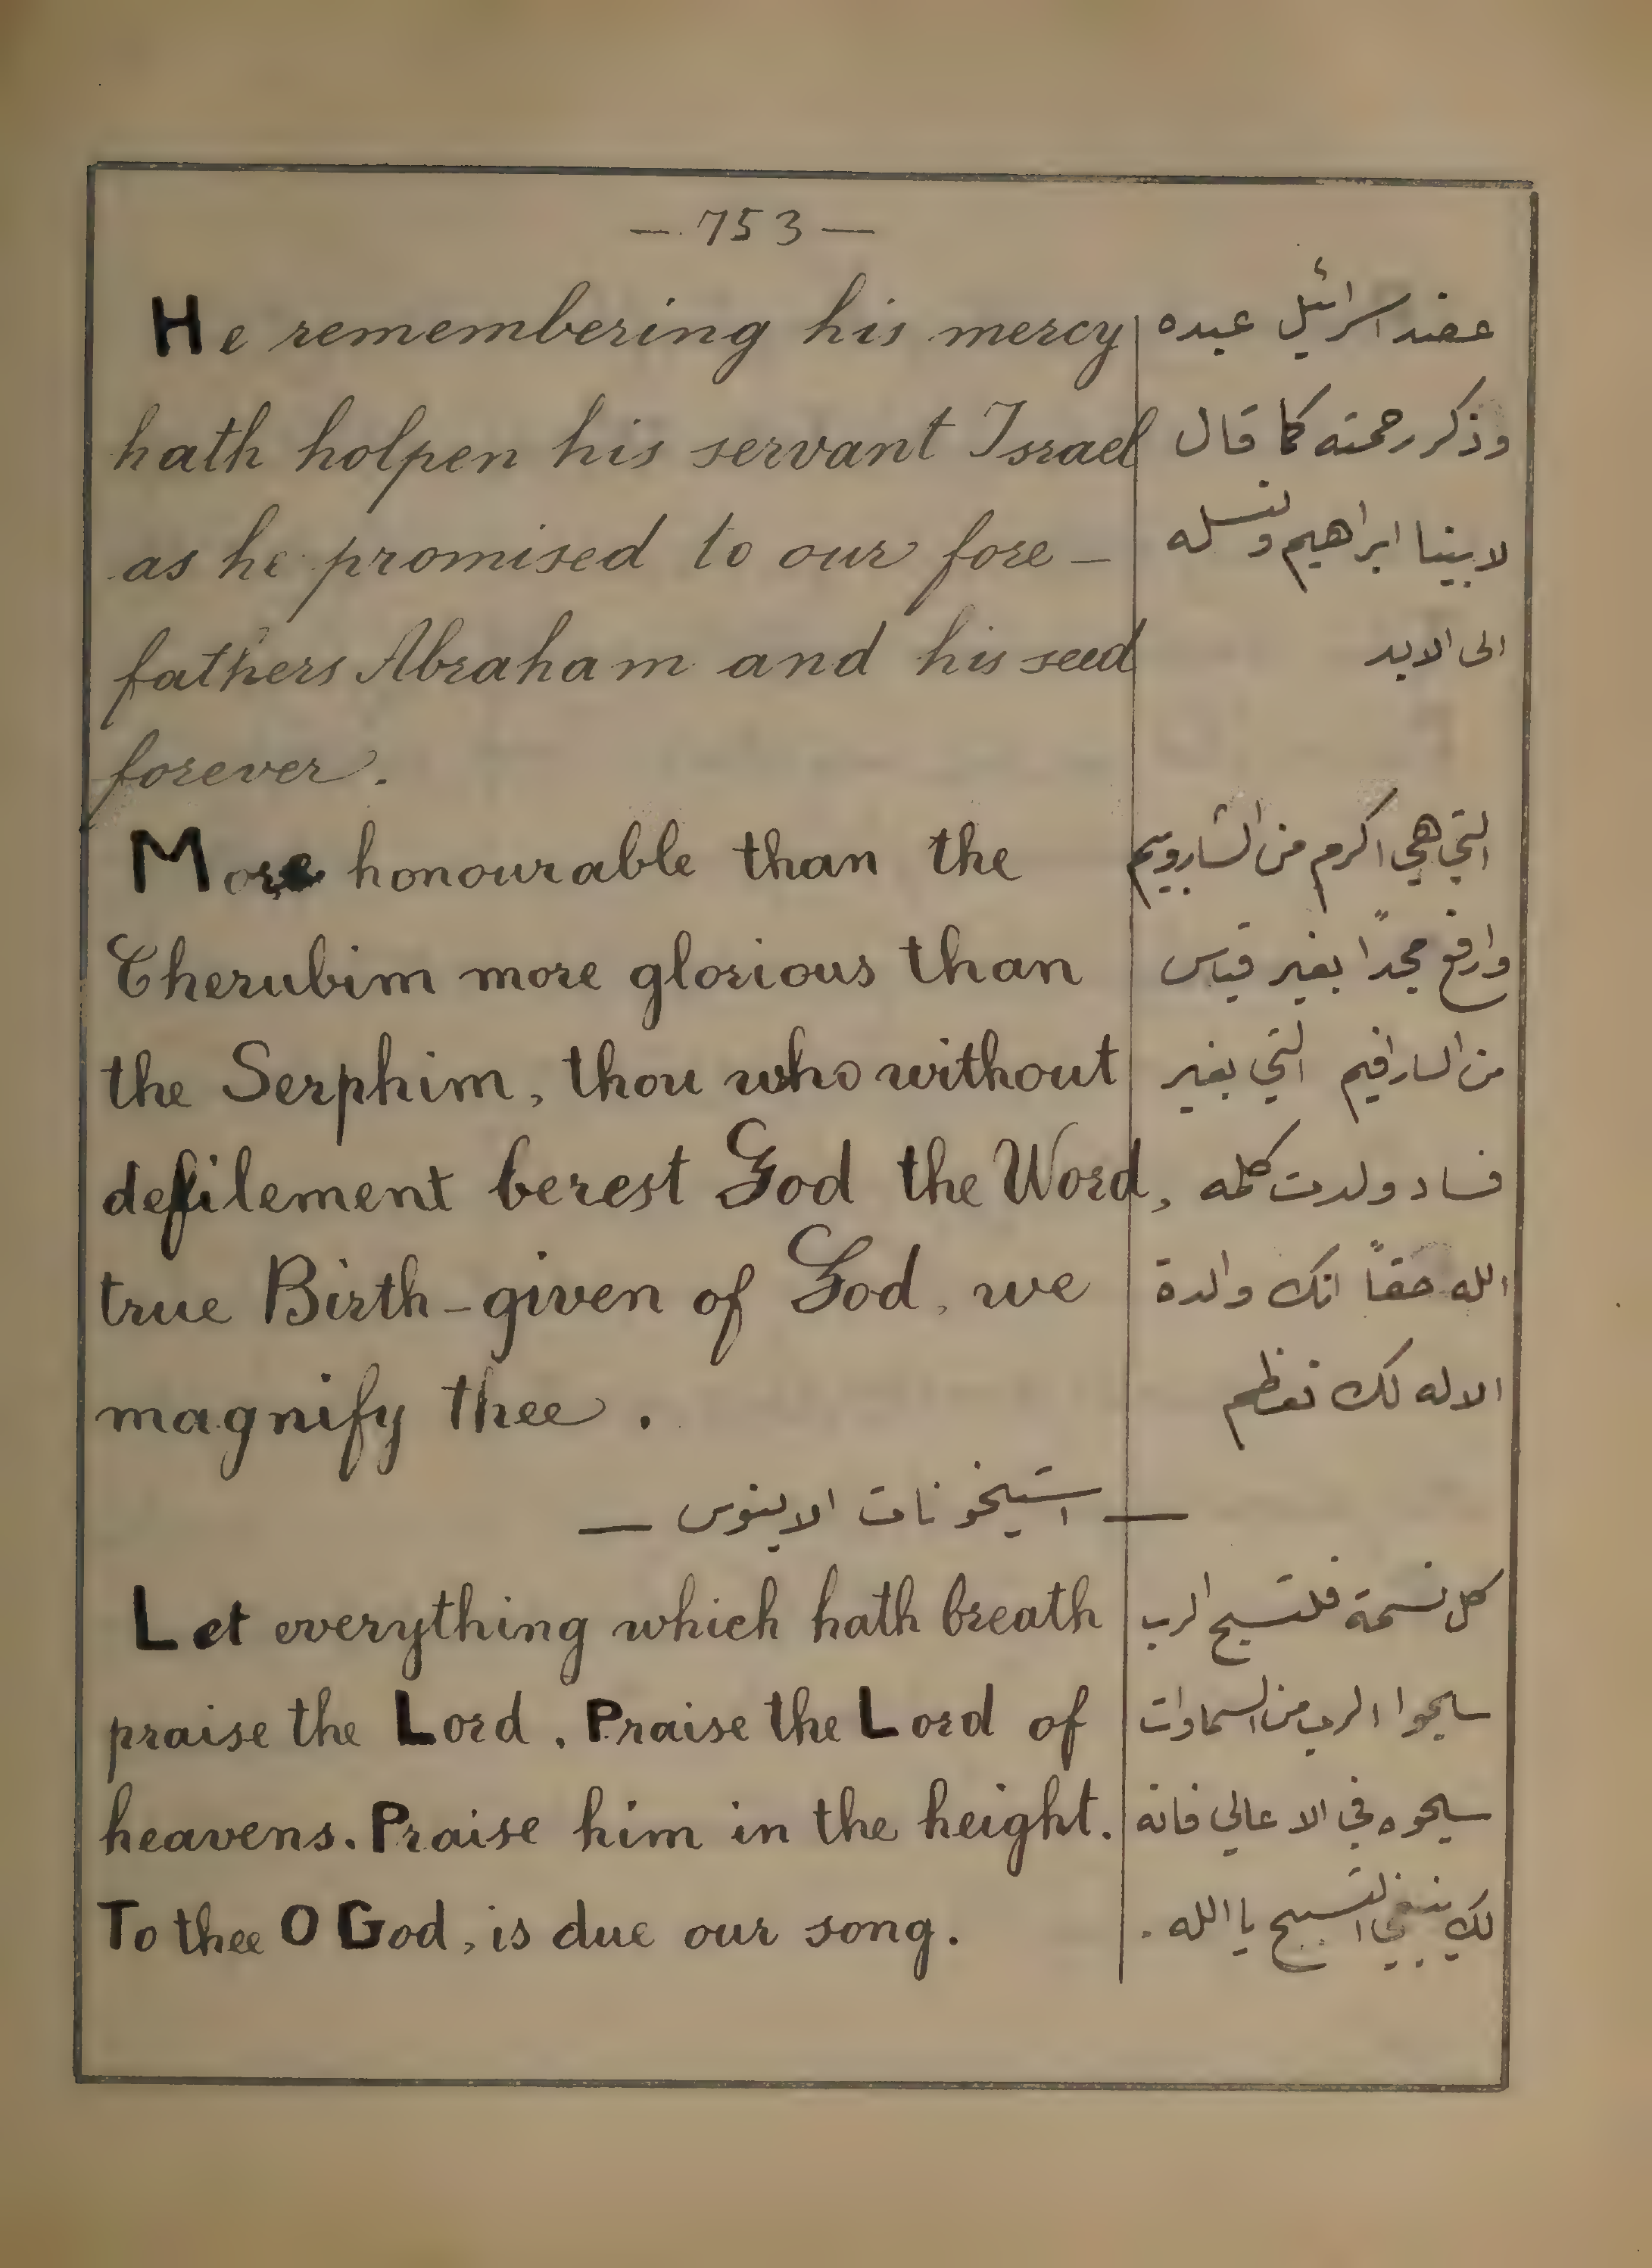 — 753 —
He remembering his mercy
hath holpen his servant Israel
as he promised to our fore –
fathers Abraham and his seed
forever.
More honourable than the
Cherubim more glorious than
the Serphim, thou who without
defilement berest God the Word,
true Birth-given of God, we
magnify thee.
عضد اسرائيل عبده
وذكر رحمته كما قال
لابينا ابراهيم ونسله
الى الابد
التي هي اكرم من الشاروبيم
وارفع مجداً بغير قياس
من السارافيم التي بغير
فساد ولدت كلمه
الله حقاً انك والدة
الاله لك نعظم
— استيخونات الاينوس —
Let everything which hath breath
praise the Lord. Praise the Lord of
heavens. Praise him in the height.
To thee O God, is due our song.
كل نسمة فلتسبح الرب
سبحوا الرب من السماوات
سبحوه في الاعالي فانه
لك ينبغي التسبيح يا الله.